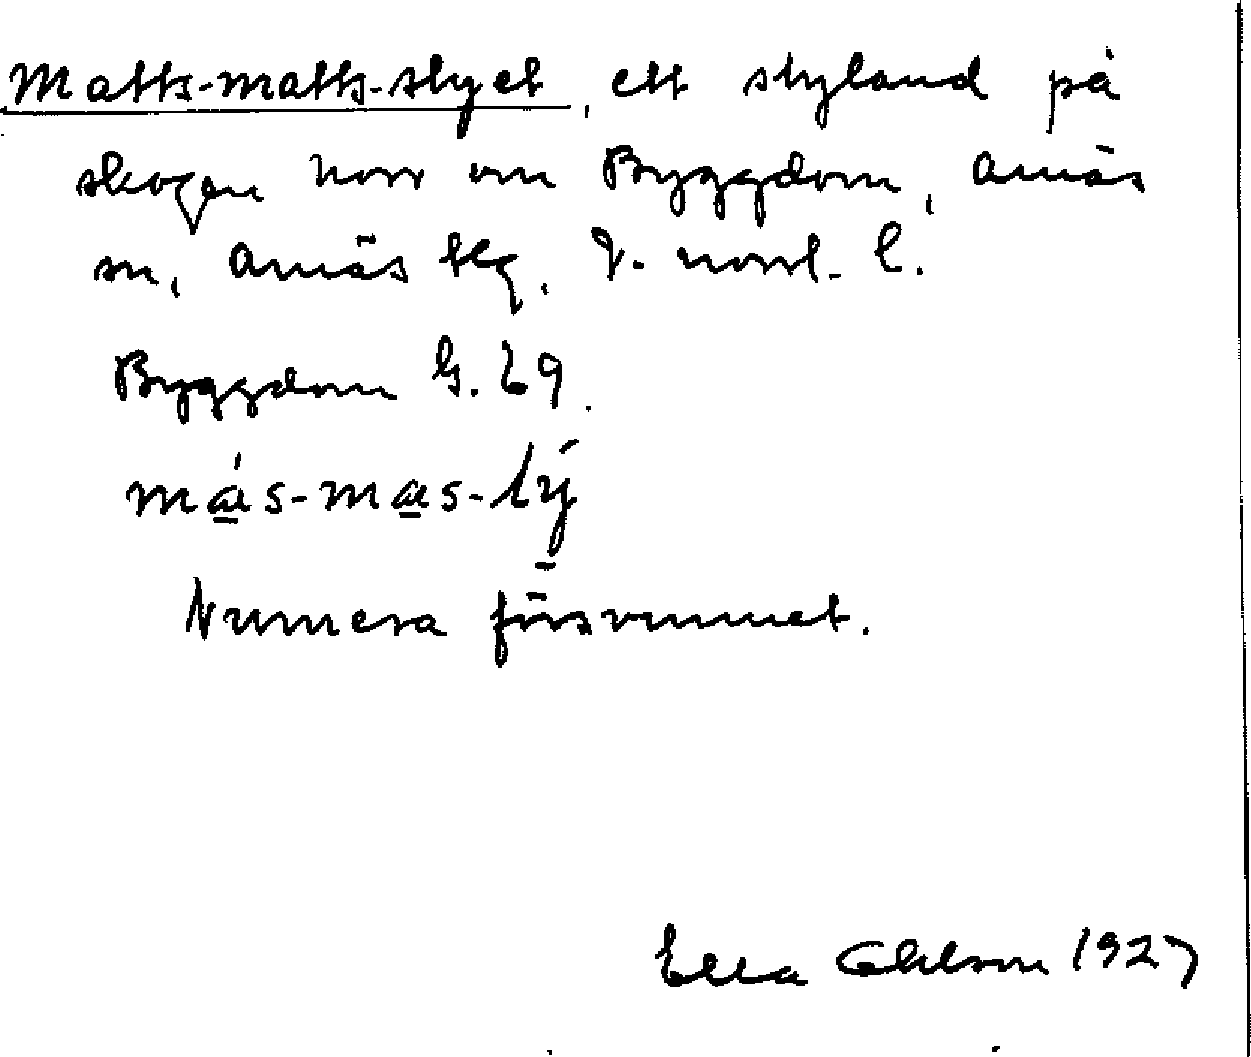 Matts-matts-skyet, ett skyland på
skogen norr om Byggdom, Arnäs
sn, Arnäs tlg, V. norrl. l.
Byggdom G. 69.
Numera försvunnet.
Ella Ohlson 1927